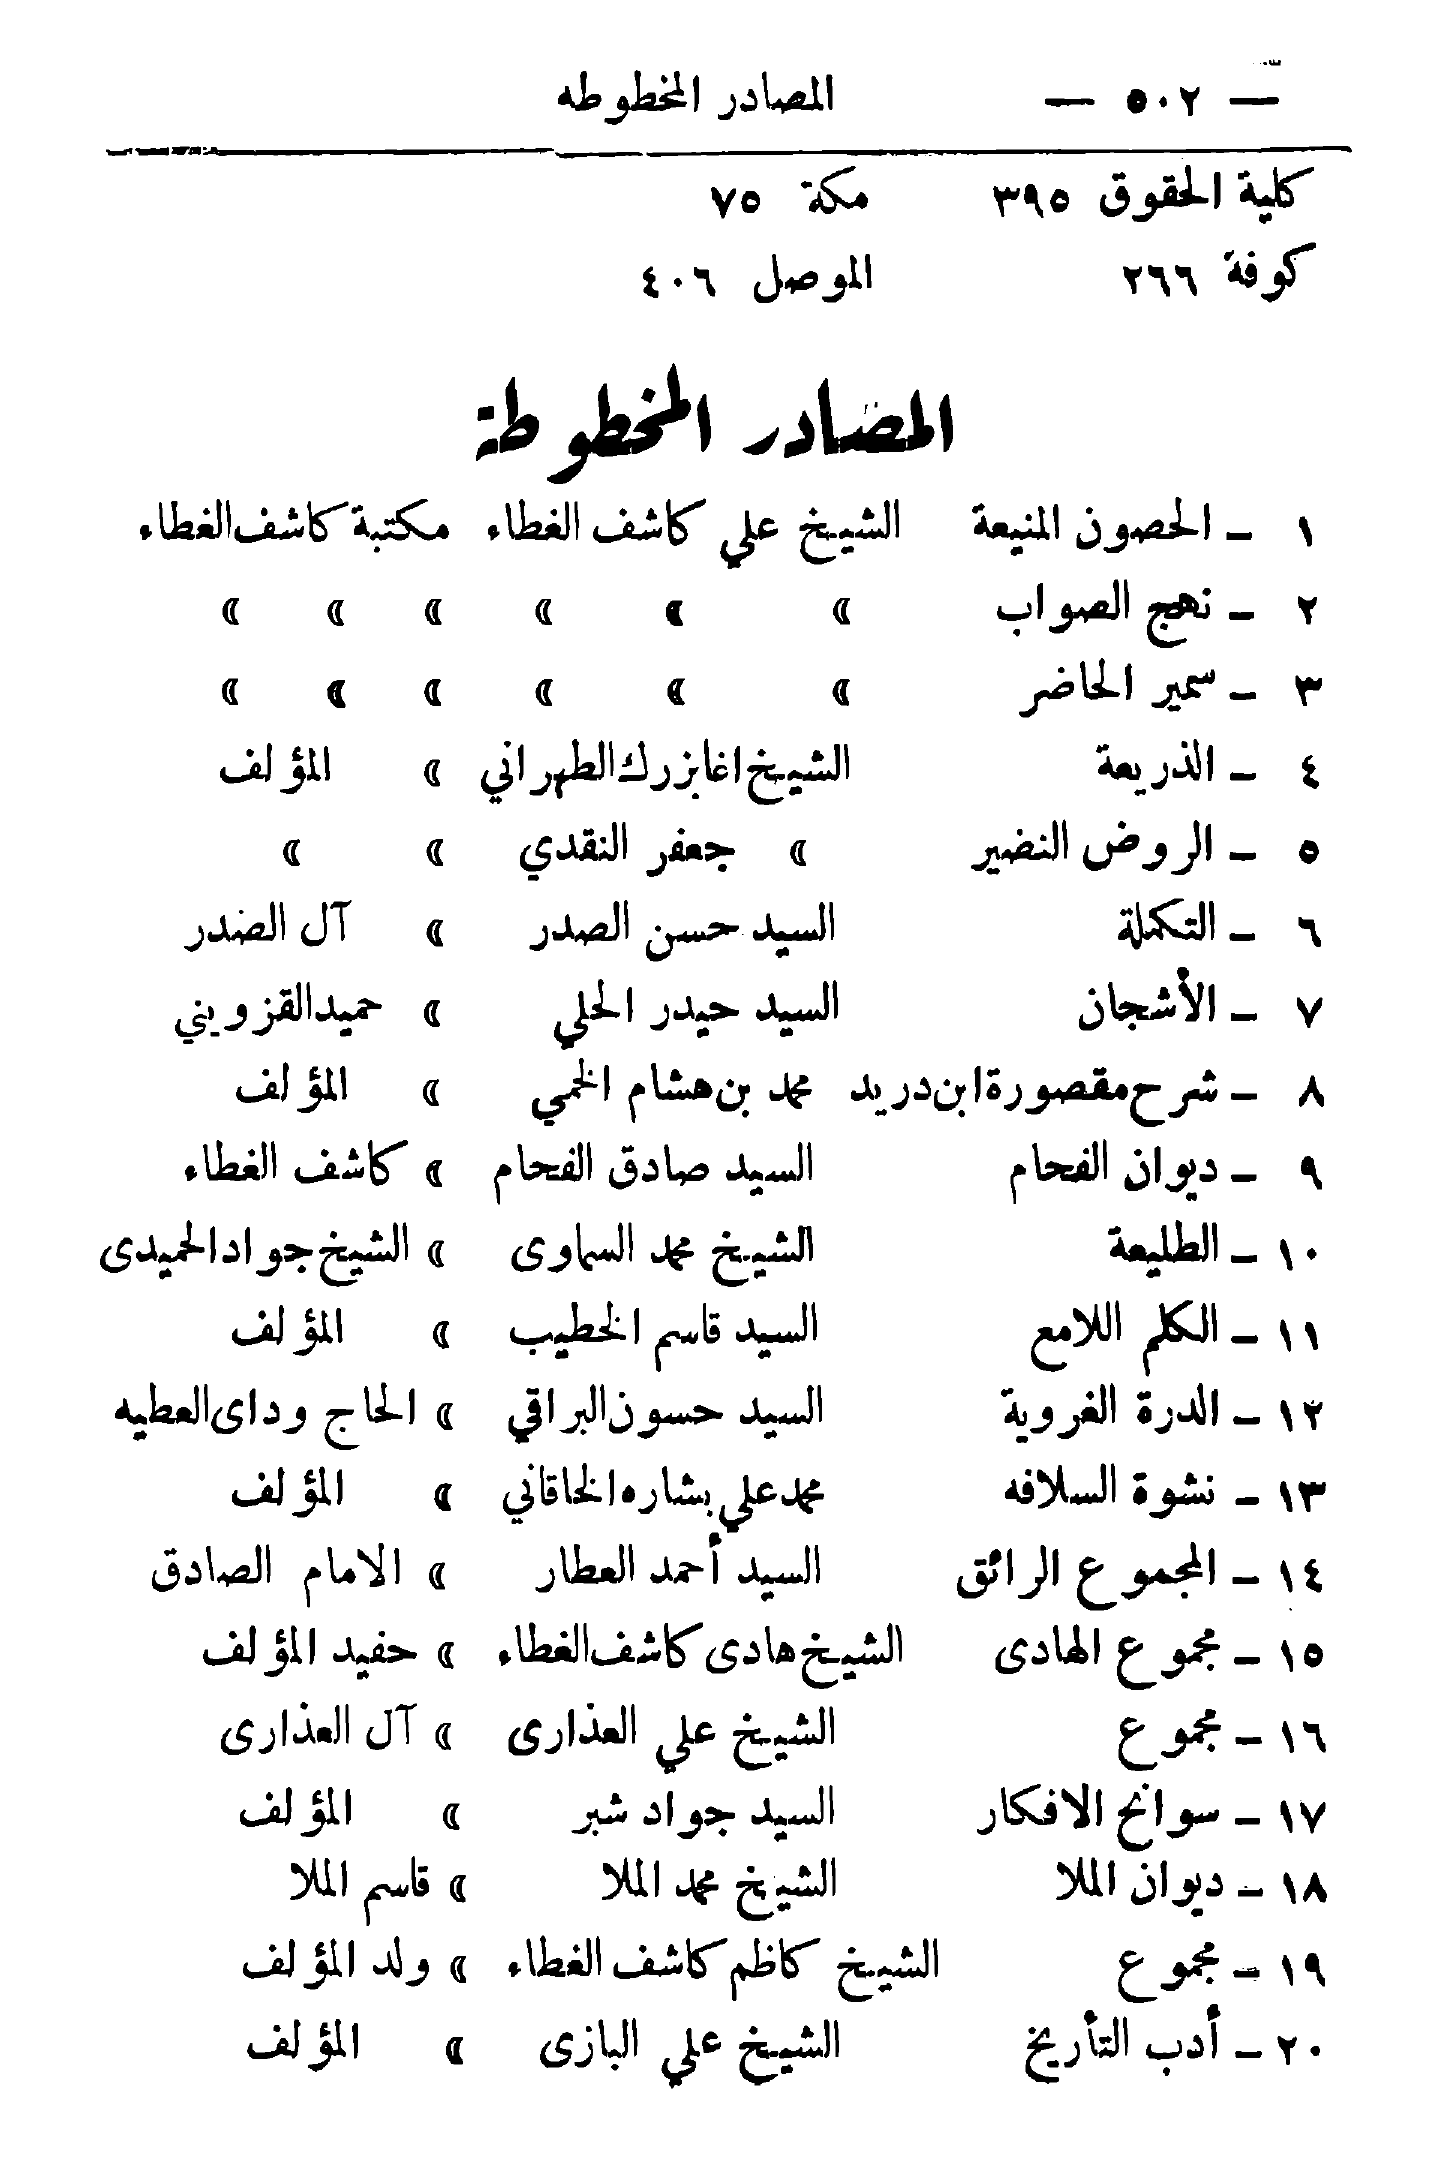 — ٥٠٢ — المصادر المخطوطه
كلية الحقوق ٣٩٥ مكة ٧٥
كوفة ٢٦٦ الموصل ٤٠٦
المصادر المخطوطة
١ – الحصون المنيعة الشيخ علي كاشف الغطاء مكتبة كاشف الغطاء
٢ – نهج الصواب » » » » » »
٣ – سمير الحاضر » » » » » »
٤ – الذريعة الشيخ اغا بزرك الطهراني » المؤلف
٥ – الروض النضير » جعفر النقدي » »
٦ – التكملة السيد حسن الصدر » آل الصدر
٧ – الأشجان السيد حيدر الحلي » حميد القزويني
٨ – شرح مقصورة ابن دريد محمد بن هشام الخمي » المؤلف
٩ – ديوان الفحام السيد صادق الفحام » كاشف الغطاء
١٠ – الطليعة الشيخ محمد السماوى » الشيخ جواد الحميدى
١١ – الكلم اللامع السيد قاسم الخطيب » المؤلف
١٢ – الدرة الغروية السيد حسون البراقي » الحاج وداى العطيه
١٣ – نشوة السلافه محمد علي بشاره الخاقاني » المؤلف
١٤ – المجموع الرائق السيد أحمد العطار » الامام الصادق
١٥ – مجموع الهادى الشيخ هادى كاشف الغطاء » حفيد المؤلف
١٦ – مجموع الشيخ علي العذارى » آل العذارى
١٧ – سوانح الافكار السيد جواد شبر » المؤلف
١٨ – ديوان الملا الشيخ محمد الملا » قاسم الملا
١٩ – مجموع الشيخ كاظم كاشف الغطاء » ولد المؤلف
٢٠ – أدب التأريخ الشيخ علي البازى » المؤلف